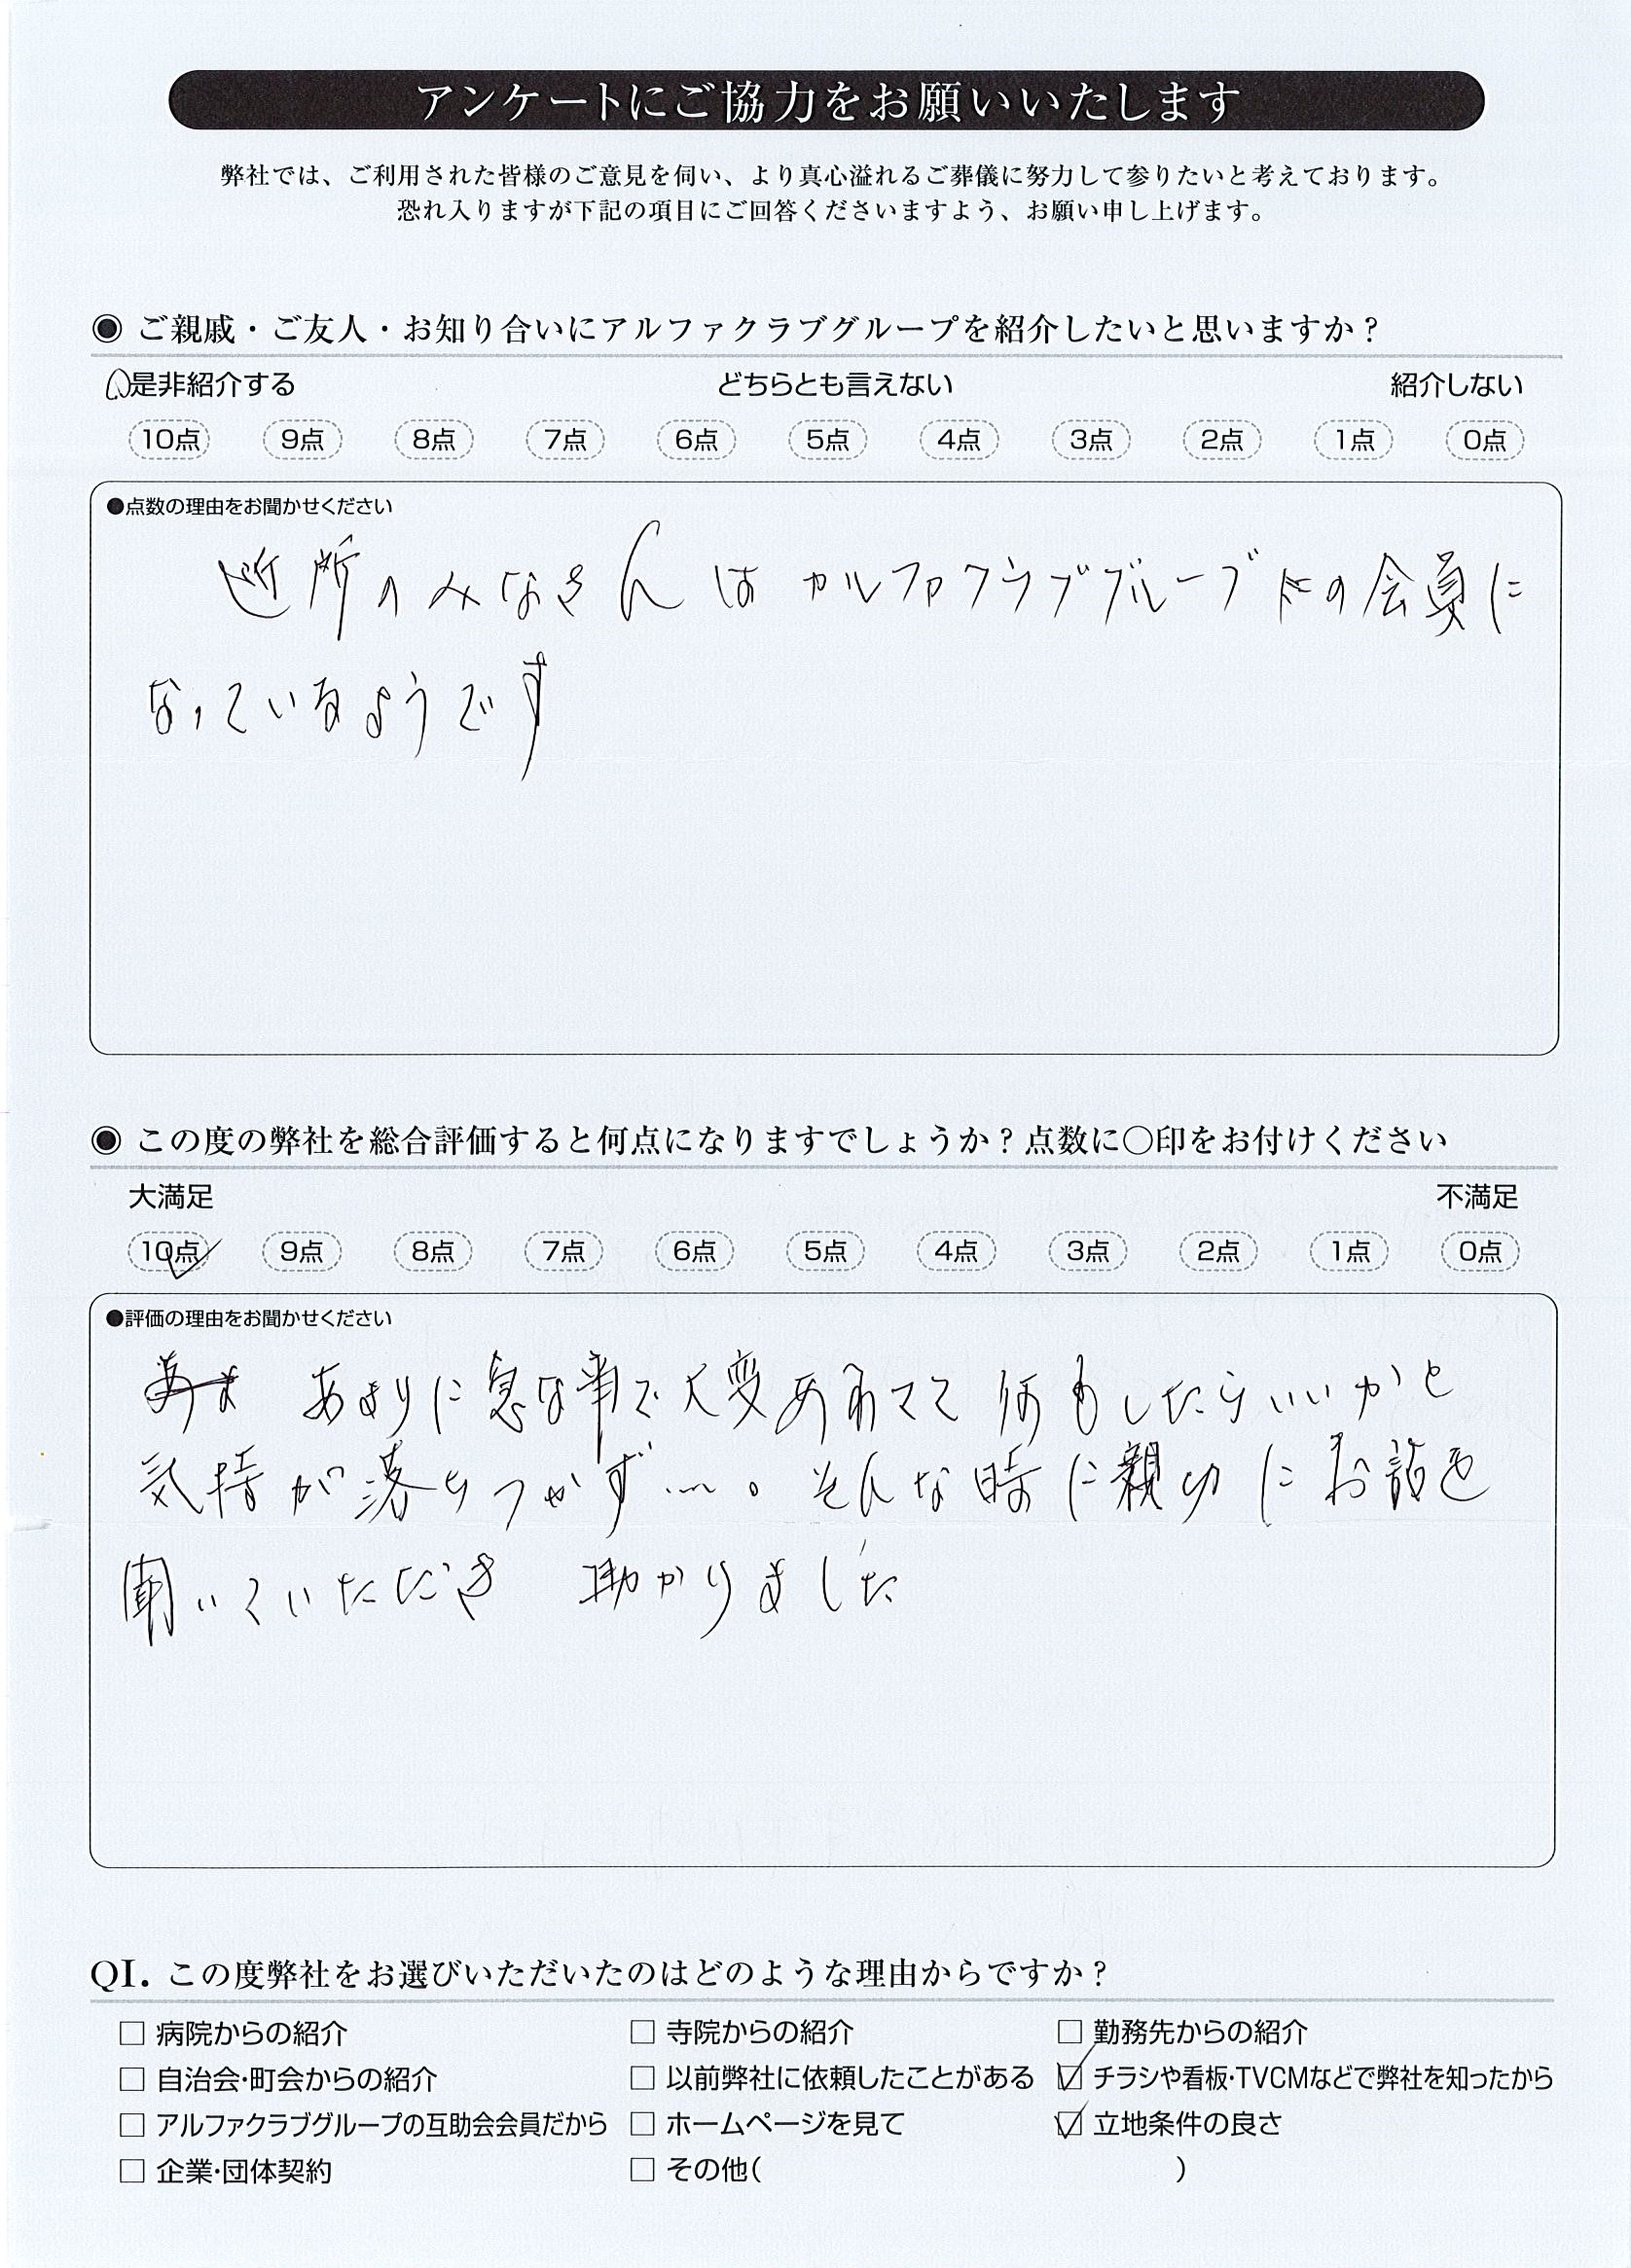 アンケートにご協力をお願いいたします
弊社では、ご利用された皆様のご意見を伺い、より真心溢れるご葬儀に努力して参りたいと考えております。
恐れ入りますが下記の項目にご回答くださいますよう、お願い申し上げます。
◉ ご親戚・ご友人・お知り合いにアルファクラブグループを紹介したいと思いますか？
是非紹介する どちらとも言えない 紹介しない
10点 9点 8点 7点 6点 5点 4点 3点 2点 1点 0点
●点数の理由をお聞かせください
近所のみなさんは アルファクラブグループの会員に
なっているようです
◉ この度の弊社を総合評価すると何点になりますでしょうか？点数に○印をお付けください
大満足 不満足
10点 9点 8点 7点 6点 5点 4点 3点 2点 1点 0点
●評価の理由をお聞かせください
あまりに急な事で大変あわてて 何をしたらいいかと
気持が落ちつかず…。そんな時に親切にお話を
聞いていただき 助かりました
QI. この度弊社をお選びいただいたのはどのような理由からですか？
□ 病院からの紹介 □ 寺院からの紹介 □ 勤務先からの紹介
□ 自治会・町会からの紹介 □ 以前弊社に依頼したことがある ☑ チラシや看板・TVCMなどで弊社を知ったから
□ アルファクラブグループの互助会会員だから □ ホームページを見て ☑ 立地条件の良さ
□ 企業・団体契約 □ その他( )